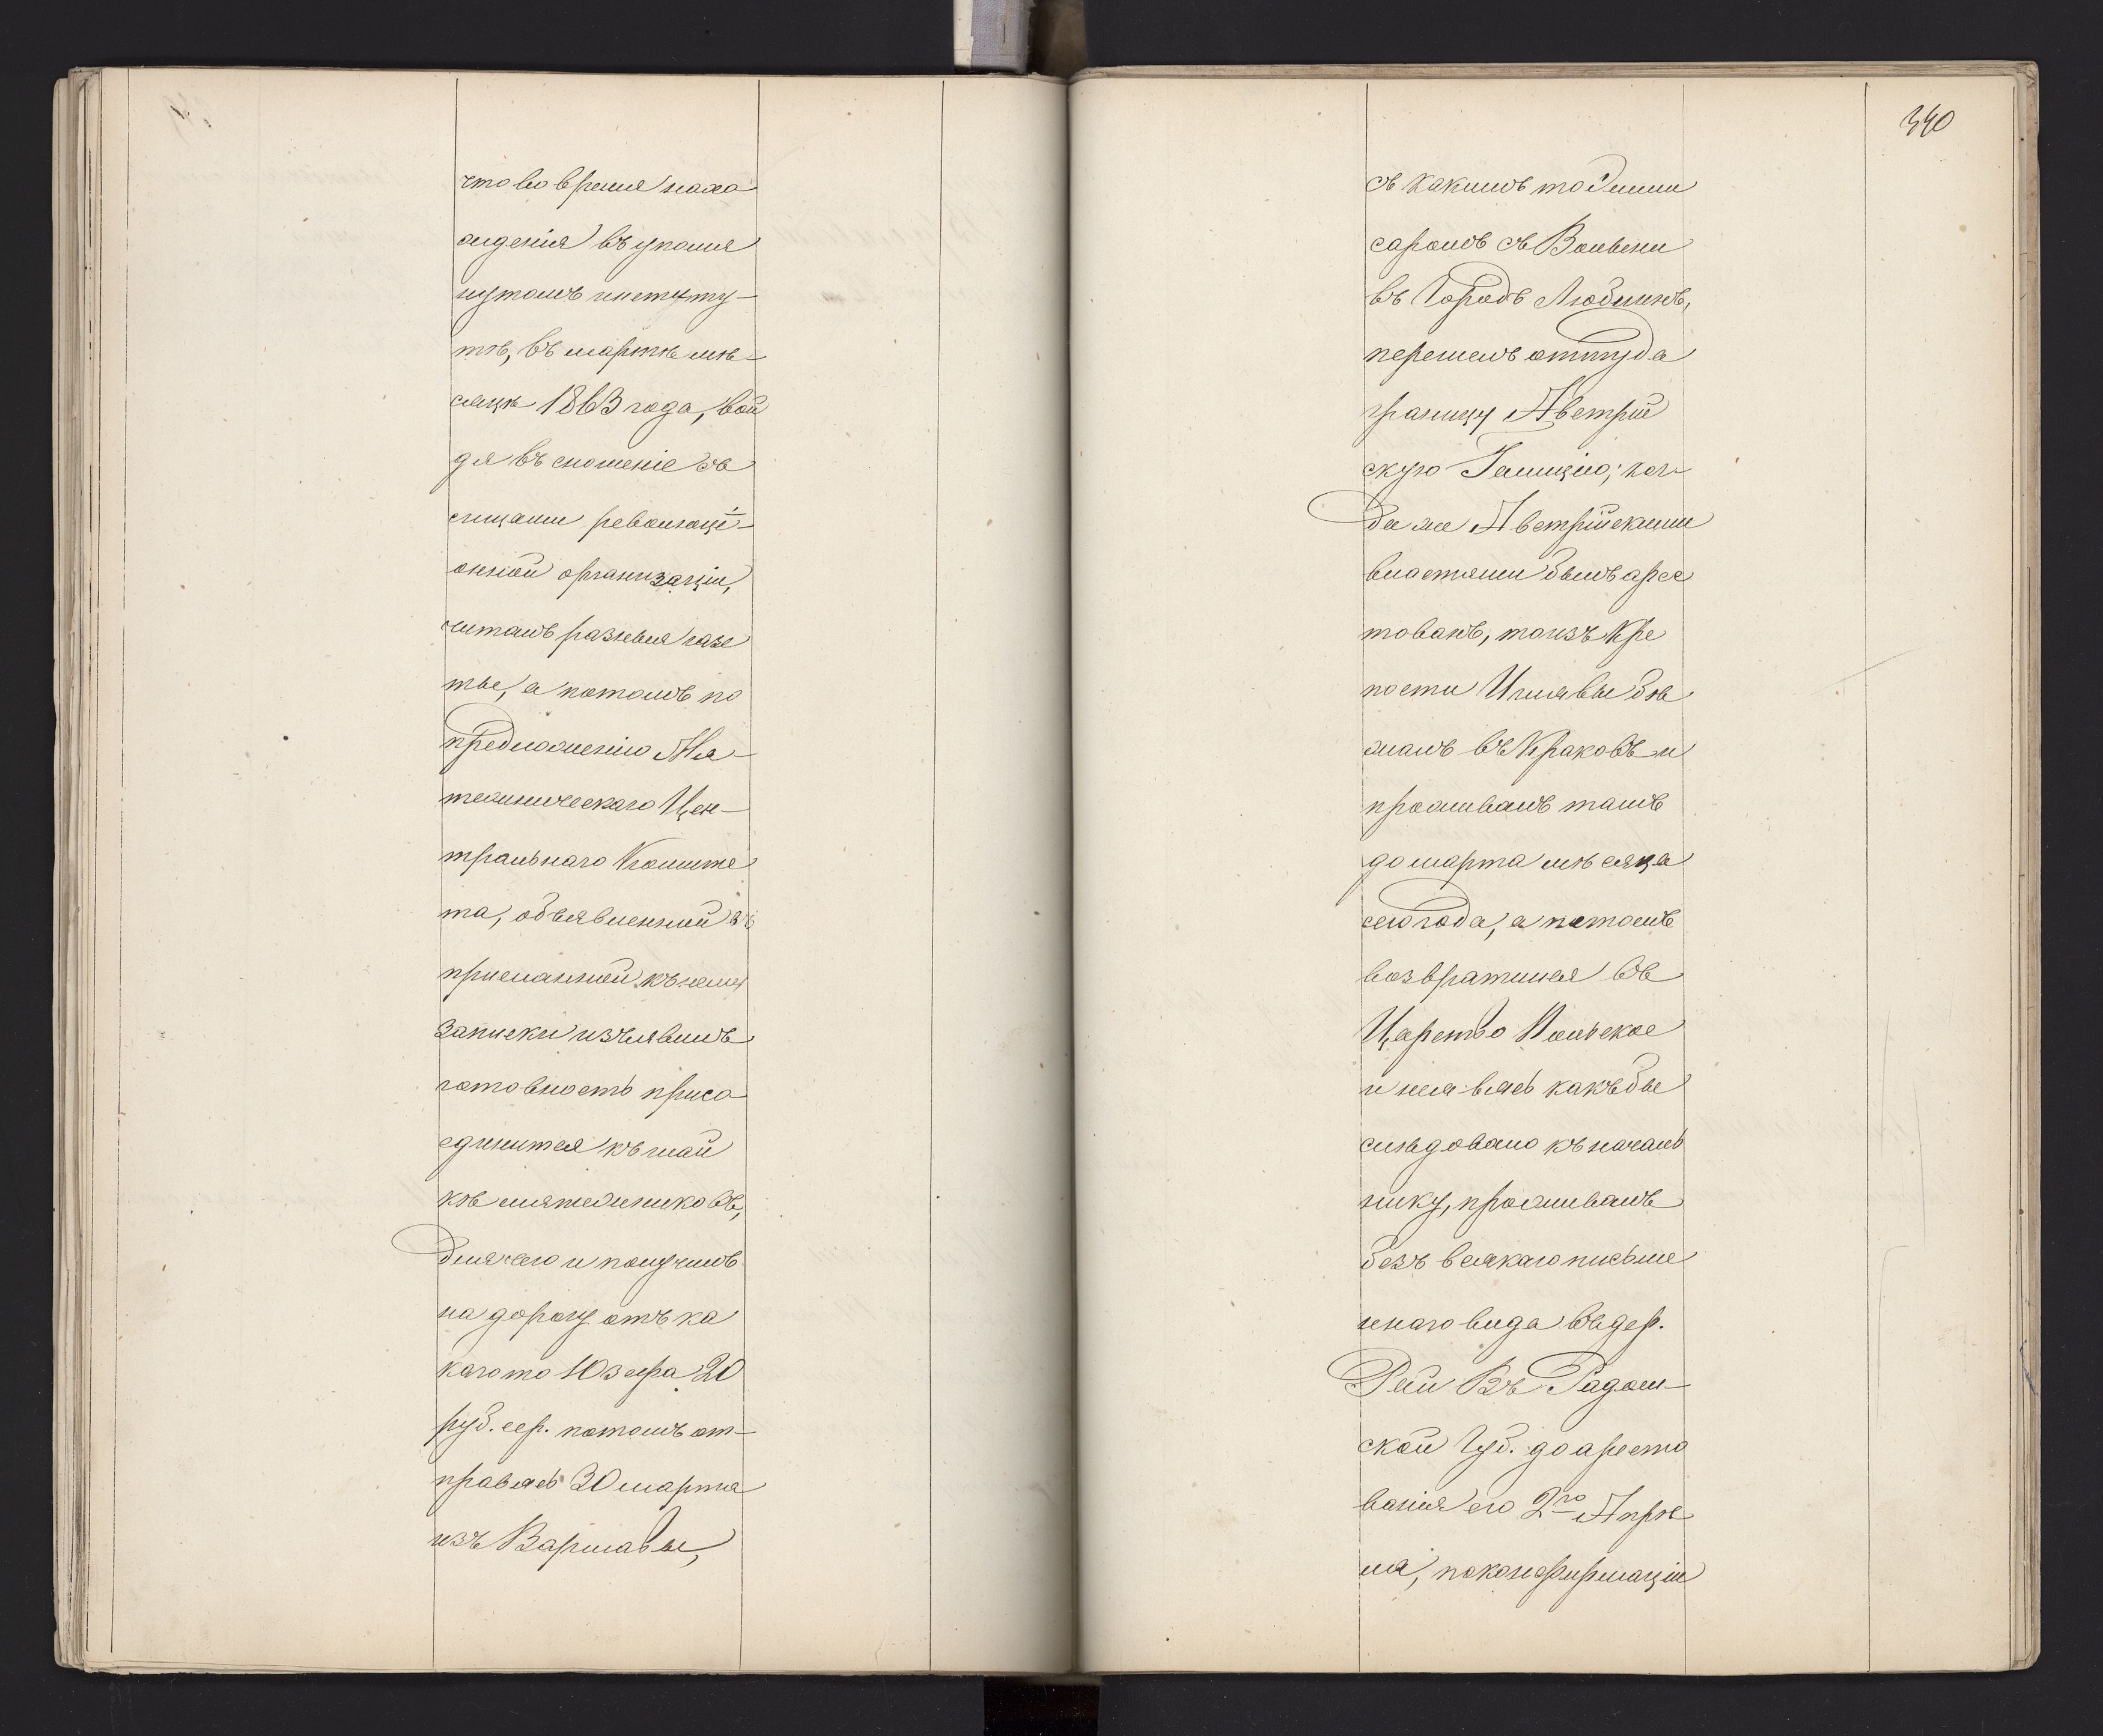 что во время нахо
жденія въ упомя
нутомъ инстуту-
тѣ, въ мартѣ мѣ-
сяцѣ 1863 года, вой
дя въ сношеніе съ
лицами революці-
онной организаціи,
читалъ разныя газе
ты, а потомъ по
предложенію Мя-
тежническаго Цен-
тральнаго Комите
та, объявленной въ
присланной къ нему
записки изъявилъ
готовность присо
единится къ шай
кѣ мятежниковъ,
для чего и получилъ
на дорогу отъ ка
кого то Юзефа 20
руб. сер. потомъ от-
правясь 30 марта
изъ Варшавы,
340
съ какимъ то Дими
саромъ съ Вольени
въ Городъ Люблинъ,
перешелъ оттуда
границу Австрій
скую Галицію; ког
да же Австрійскими
властями былъ арес
тованъ, то изъ Кре
пости Иглявы бѣ
жалъ въ Краковъ и
проживалъ тамъ
до марта мѣсяца
сего года, а потомъ
возвратился въ
Царство Польское
и неявясь какъ бы
слѣдовало къ началь
нику, проживалъ
безъ всякаго письме
ннаго вида въ дер.
Рейи Въ Радом-
ской Губ. до аресто
ванія его 2го Апрѣ
ля, по конфирмаціи